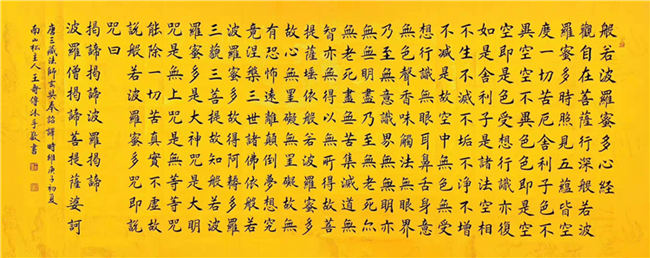 般若波羅蜜多心經
觀自在菩薩行深般若波
羅蜜多時照見五蘊皆空
度一切苦厄舍利子色不
異空空不異色色即是空
空即是色受想行識亦復
如是舍利子是諸法空相
不生不滅不垢不淨不增
不減是故空中無色無受
想行識無眼耳鼻舌身意
無色聲香味觸法無眼界
乃至無意識界無無明亦
無無明盡乃至無老死亦
無老死盡無苦集滅道無
智亦無得以無所得故菩
提薩埵依般若波羅蜜多
故心無罣礙無罣礙故無
有恐怖遠離顛倒夢想究
竟涅槃三世諸佛依般若
波羅蜜多故得阿耨多羅
三藐三菩提故知般若波
羅蜜多是大神咒是大明
咒是無上咒是無等等咒
能除一切苦真實不虛故
說般若波羅蜜多咒即說
咒曰
揭諦揭諦波羅揭諦
波羅僧揭諦菩提薩婆訶
唐三藏法師玄奘奉詔譯 時維庚子初夏
南山松主人王奇傳沐手敬書